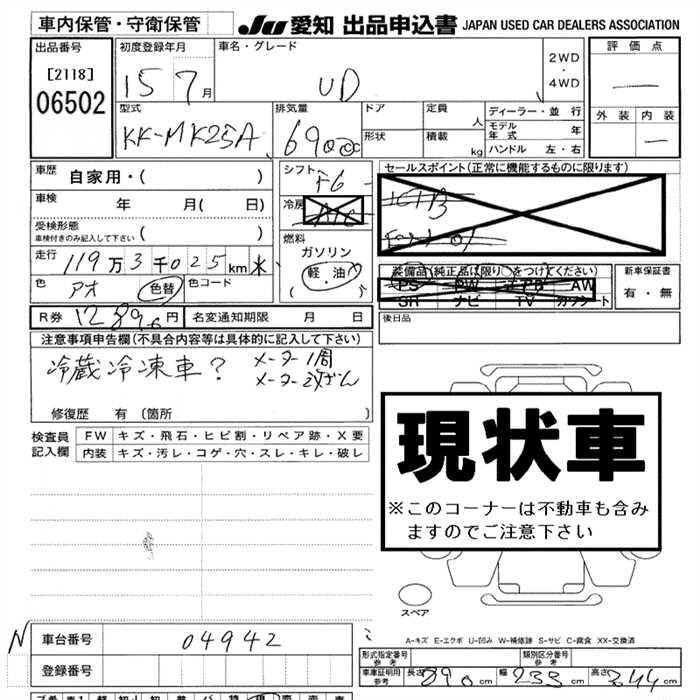 車内保管・守衛保管
JU 愛知 出品申込書 JAPAN USED CAR DEALERS ASSOCIATION
出品番号
[2118]
06502
初度登録年月
15 7 月
車名・グレード
UD
2WD
・
4WD
評価点
外装 内装
型式
KK-MK25A
排気量
6900cc
ドア
形状
定員 人
積載 kg
ディーラー・並行
モデル年式 年
ハンドル 左・右
車歴 自家用・( )
車検 年 月( 日)
受検形態
車検付きのみ記入して下さい ( )
走行 119万3千025km
色 アオ 色替 色コード
R券 12,890円 名変通知期限 月 日
シフト F6
冷房 A/C
燃料
ガソリン
軽・油
( )
セールスポイント(正常に機能するものに限ります)
装備品(純正品に限り○をつけてください)
PS PW AW
SH ナビ TV カワシート
新車保証書
有・無
後日品
注意事項申告欄(不具合内容等は具体的に記入して下さい)
冷蔵冷凍車?
メーター1周
メーター改ざん
修復歴 有(箇所 )
検査員記入欄
FW キズ・飛石・ヒビ割・リペア跡・X要
内装 キズ・汚レ・コゲ・穴・スレ・キレ・破レ
現状車
※このコーナーは不動車も含み
ますのでご注意下さい
スペア
A-キズ E-エクボ U-凹み W-補修跡 S-サビ C-腐食 XX-交換済
N 車台番号 04942
登録番号
形式指定番号 参考
類別区分番号 参考
車庫証明用 参考 長さ 890cm 幅 233cm 高さ 344cm